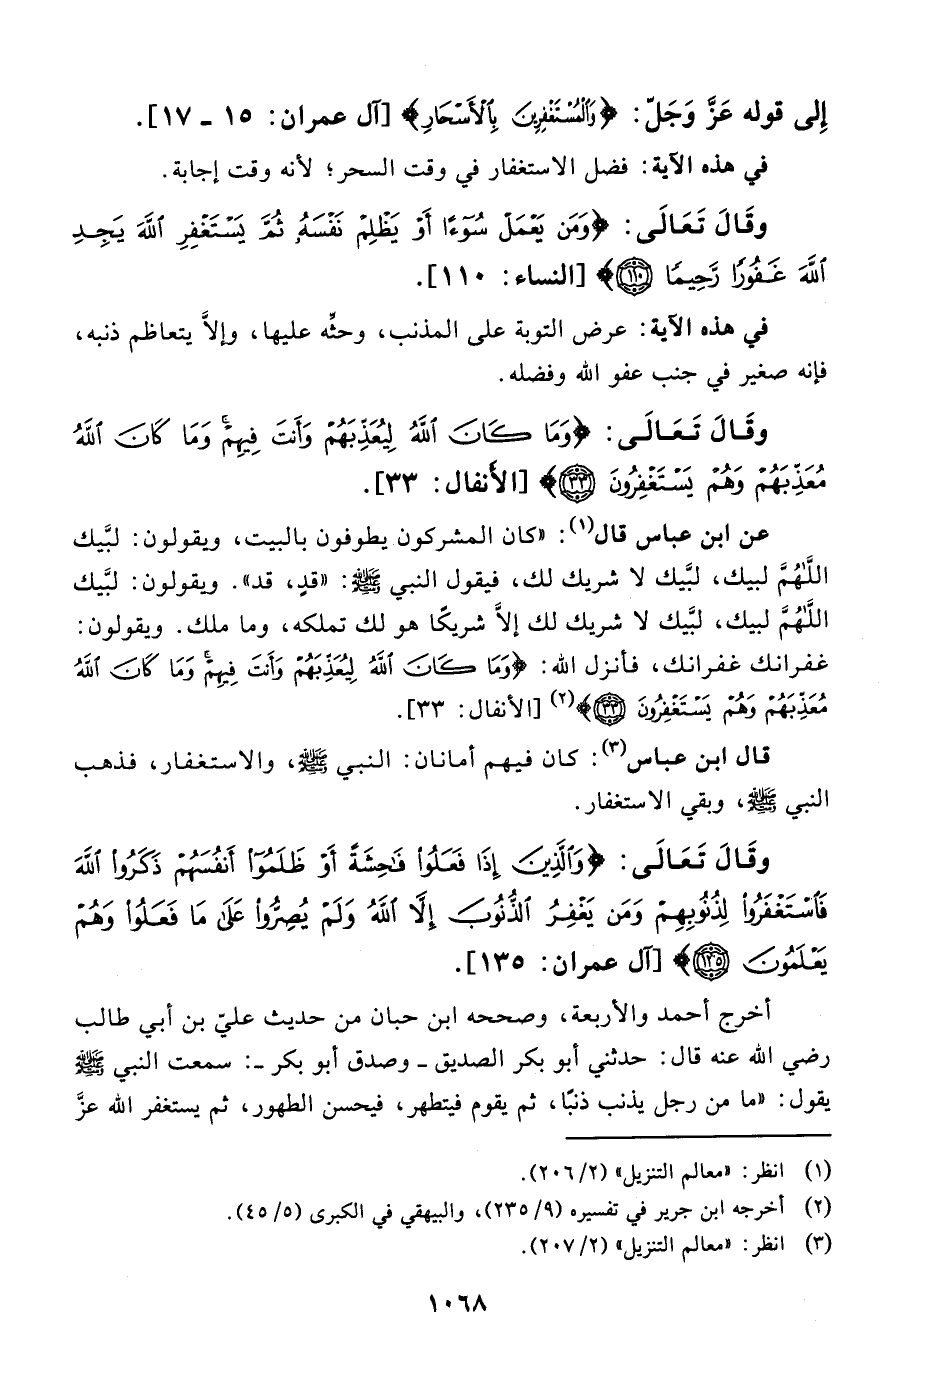 إلى قوله عَزَّ وَجَلّ: ﴿وَٱلْمُسْتَغْفِرِينَ بِٱلْأَسْحَارِ﴾ [آل عمران: ١٥ ـ ١٧].
في هذه الآية: فضل الاستغفار في وقت السحر؛ لأنه وقت إجابة.
وقَالَ تَعَالَى: ﴿وَمَن يَعْمَلْ سُوٓءًا أَوْ يَظْلِمْ نَفْسَهُۥ ثُمَّ يَسْتَغْفِرِ ٱللَّهَ يَجِدِ
ٱللَّهَ غَفُورًا رَّحِيمًا ۝١١٠﴾ [النساء: ١١٠].
في هذه الآية: عرض التوبة على المذنب، وحثِّه عليها، وإلاَّ يتعاظم ذنبه،
فإنه صغير في جنب عفو الله وفضله.
وقَالَ تَعَالَى: ﴿وَمَا كَانَ ٱللَّهُ لِيُعَذِّبَهُمْ وَأَنتَ فِيهِمْ ۚ وَمَا كَانَ ٱللَّهُ
مُعَذِّبَهُمْ وَهُمْ يَسْتَغْفِرُونَ ۝٣٣﴾ [الأنفال: ٣٣].
عن ابن عباس قال(١): «كان المشركون يطوفون بالبيت، ويقولون: لبَّيك
اللَّهُمَّ لبيك، لبَّيك لا شريك لك، فيقول النبي ﷺ: «قدٍ، قد». ويقولون: لبَّيك
اللَّهُمَّ لبيك، لبَّيك لا شريك لك إلاَّ شريكًا هو لك تملكه، وما ملك. ويقولون:
غفرانك غفرانك، فأنزل الله: ﴿وَمَا كَانَ ٱللَّهُ لِيُعَذِّبَهُمْ وَأَنتَ فِيهِمْ ۚ وَمَا كَانَ ٱللَّهُ
مُعَذِّبَهُمْ وَهُمْ يَسْتَغْفِرُونَ ۝٣٣﴾(٢) [الأنفال: ٣٣].
قال ابن عباس(٣): كان فيهم أمانان: النبي ﷺ، والاستغفار، فذهب
النبي ﷺ، وبقي الاستغفار.
وقَالَ تَعَالَى: ﴿وَٱلَّذِينَ إِذَا فَعَلُوا۟ فَٰحِشَةً أَوْ ظَلَمُوٓا۟ أَنفُسَهُمْ ذَكَرُوا۟ ٱللَّهَ
فَٱسْتَغْفَرُوا۟ لِذُنُوبِهِمْ وَمَن يَغْفِرُ ٱلذُّنُوبَ إِلَّا ٱللَّهُ وَلَمْ يُصِرُّوا۟ عَلَىٰ مَا فَعَلُوا۟ وَهُمْ
يَعْلَمُونَ ۝١٣٥﴾ [آل عمران: ١٣٥].
أخرج أحمد والأربعة، وصححه ابن حبان من حديث عليّ بن أبي طالب
رضي الله عنه قال: حدثني أبو بكر الصديق ـ وصدق أبو بكر ـ: سمعت النبي ﷺ
يقول: «ما من رجل يذنب ذنبًا، ثم يقوم فيتطهر، فيحسن الطهور، ثم يستغفر الله عزَّ
(١) انظر: «معالم التنزيل» (٢/ ٢٠٦).
(٢) أخرجه ابن جرير في تفسيره (٩/ ٢٣٥)، والبيهقي في الكبرى (٥/ ٤٥).
(٣) انظر: «معالم التنزيل» (٢/ ٢٠٧).
١٠٦٨